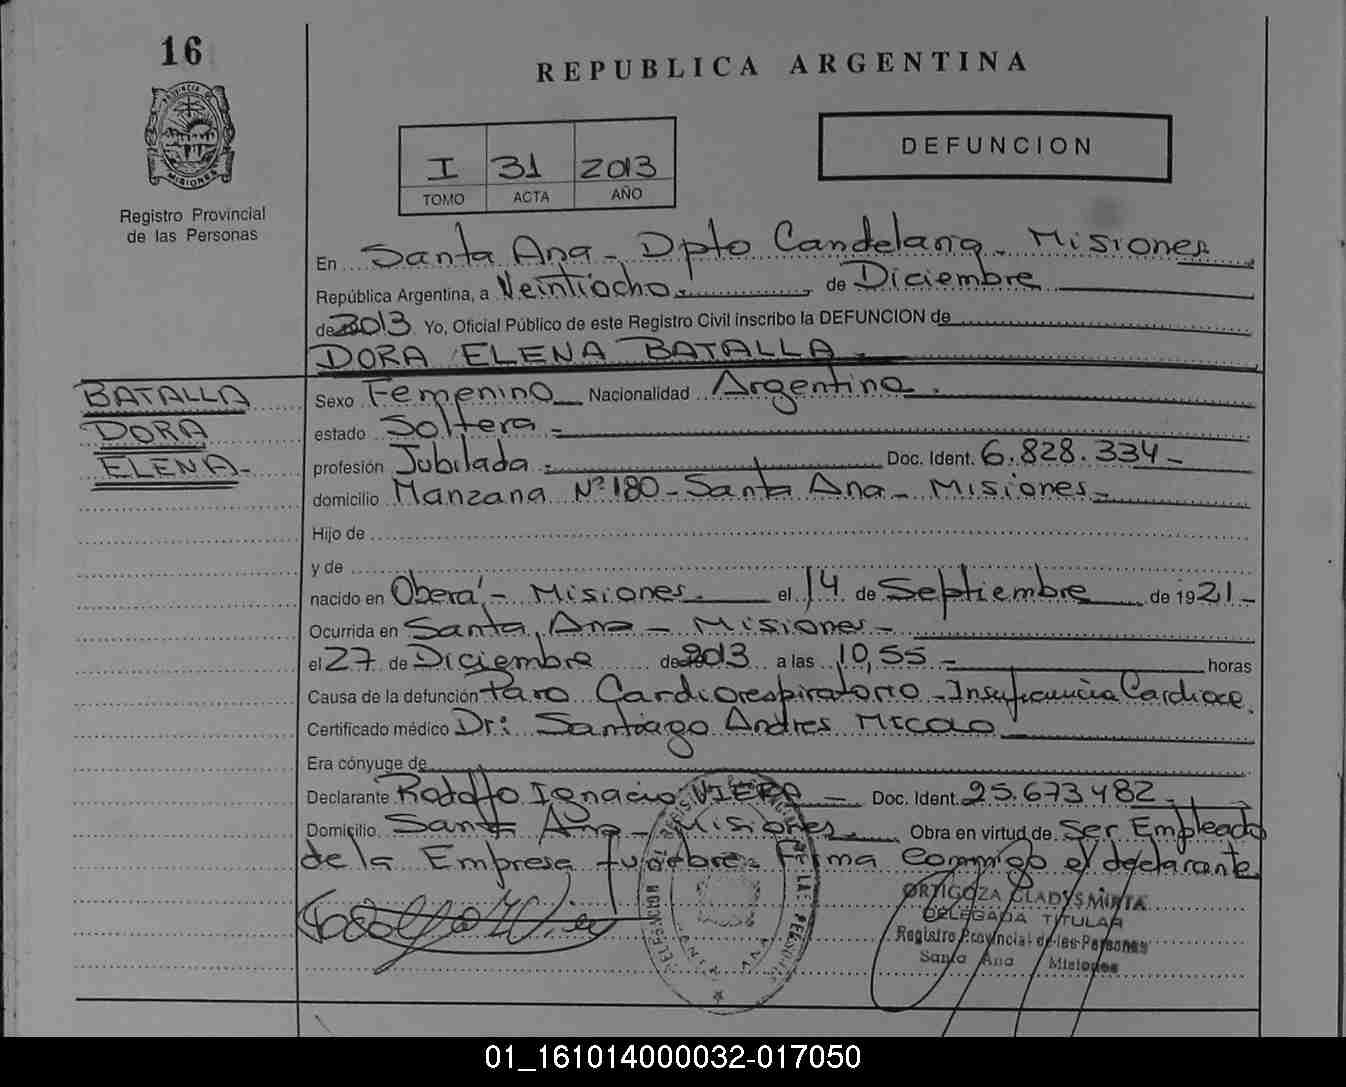 16
REPUBLICA ARGENTINA
PROVINCIA DE
MISIONES
Registro Provincial
de las Personas
I 31 2013
TOMO ACTA AÑO
DEFUNCION
En Santa Ana - Dpto Candelaria - Misiones
República Argentina, a Veintiocho de Diciembre
de 2013 Yo, Oficial Público de este Registro Civil inscribo la DEFUNCION de
DORA ELENA BATALLA
BATALLA
DORA
ELENA-
Sexo Femenino Nacionalidad Argentina.
estado Soltera -
profesión Jubilada - Doc. Ident. 6.828.334-
domicilio Manzana Nº 180 - Santa Ana - Misiones -
Hijo de
y de
nacido en Oberá - Misiones. el 14 de Septiembre de 1921-
Ocurrida en Santa Ana - Misiones -
el 27 de Diciembre de 2013 a las 10,55 - horas
Causa de la defunción Paro Cardiorespiratorio - Insuficiencia Cardiace.
Certificado médico Dr: Santiago Andres
Era cónyuge de
Declarante Rodolfo Ignacio VIERA - Doc. Ident. 25.673482-
Domicilio Santa Ana - Misiones. Obra en virtud de Ser Empleado
de la Empresa funebre. Firma conmigo el declarante
ORTIGOZA GLADYS MIRTA
DELEGADA TITULAR
Registro Provincial de las Personas
Santa Ana Misiones
01_161014000032-017050